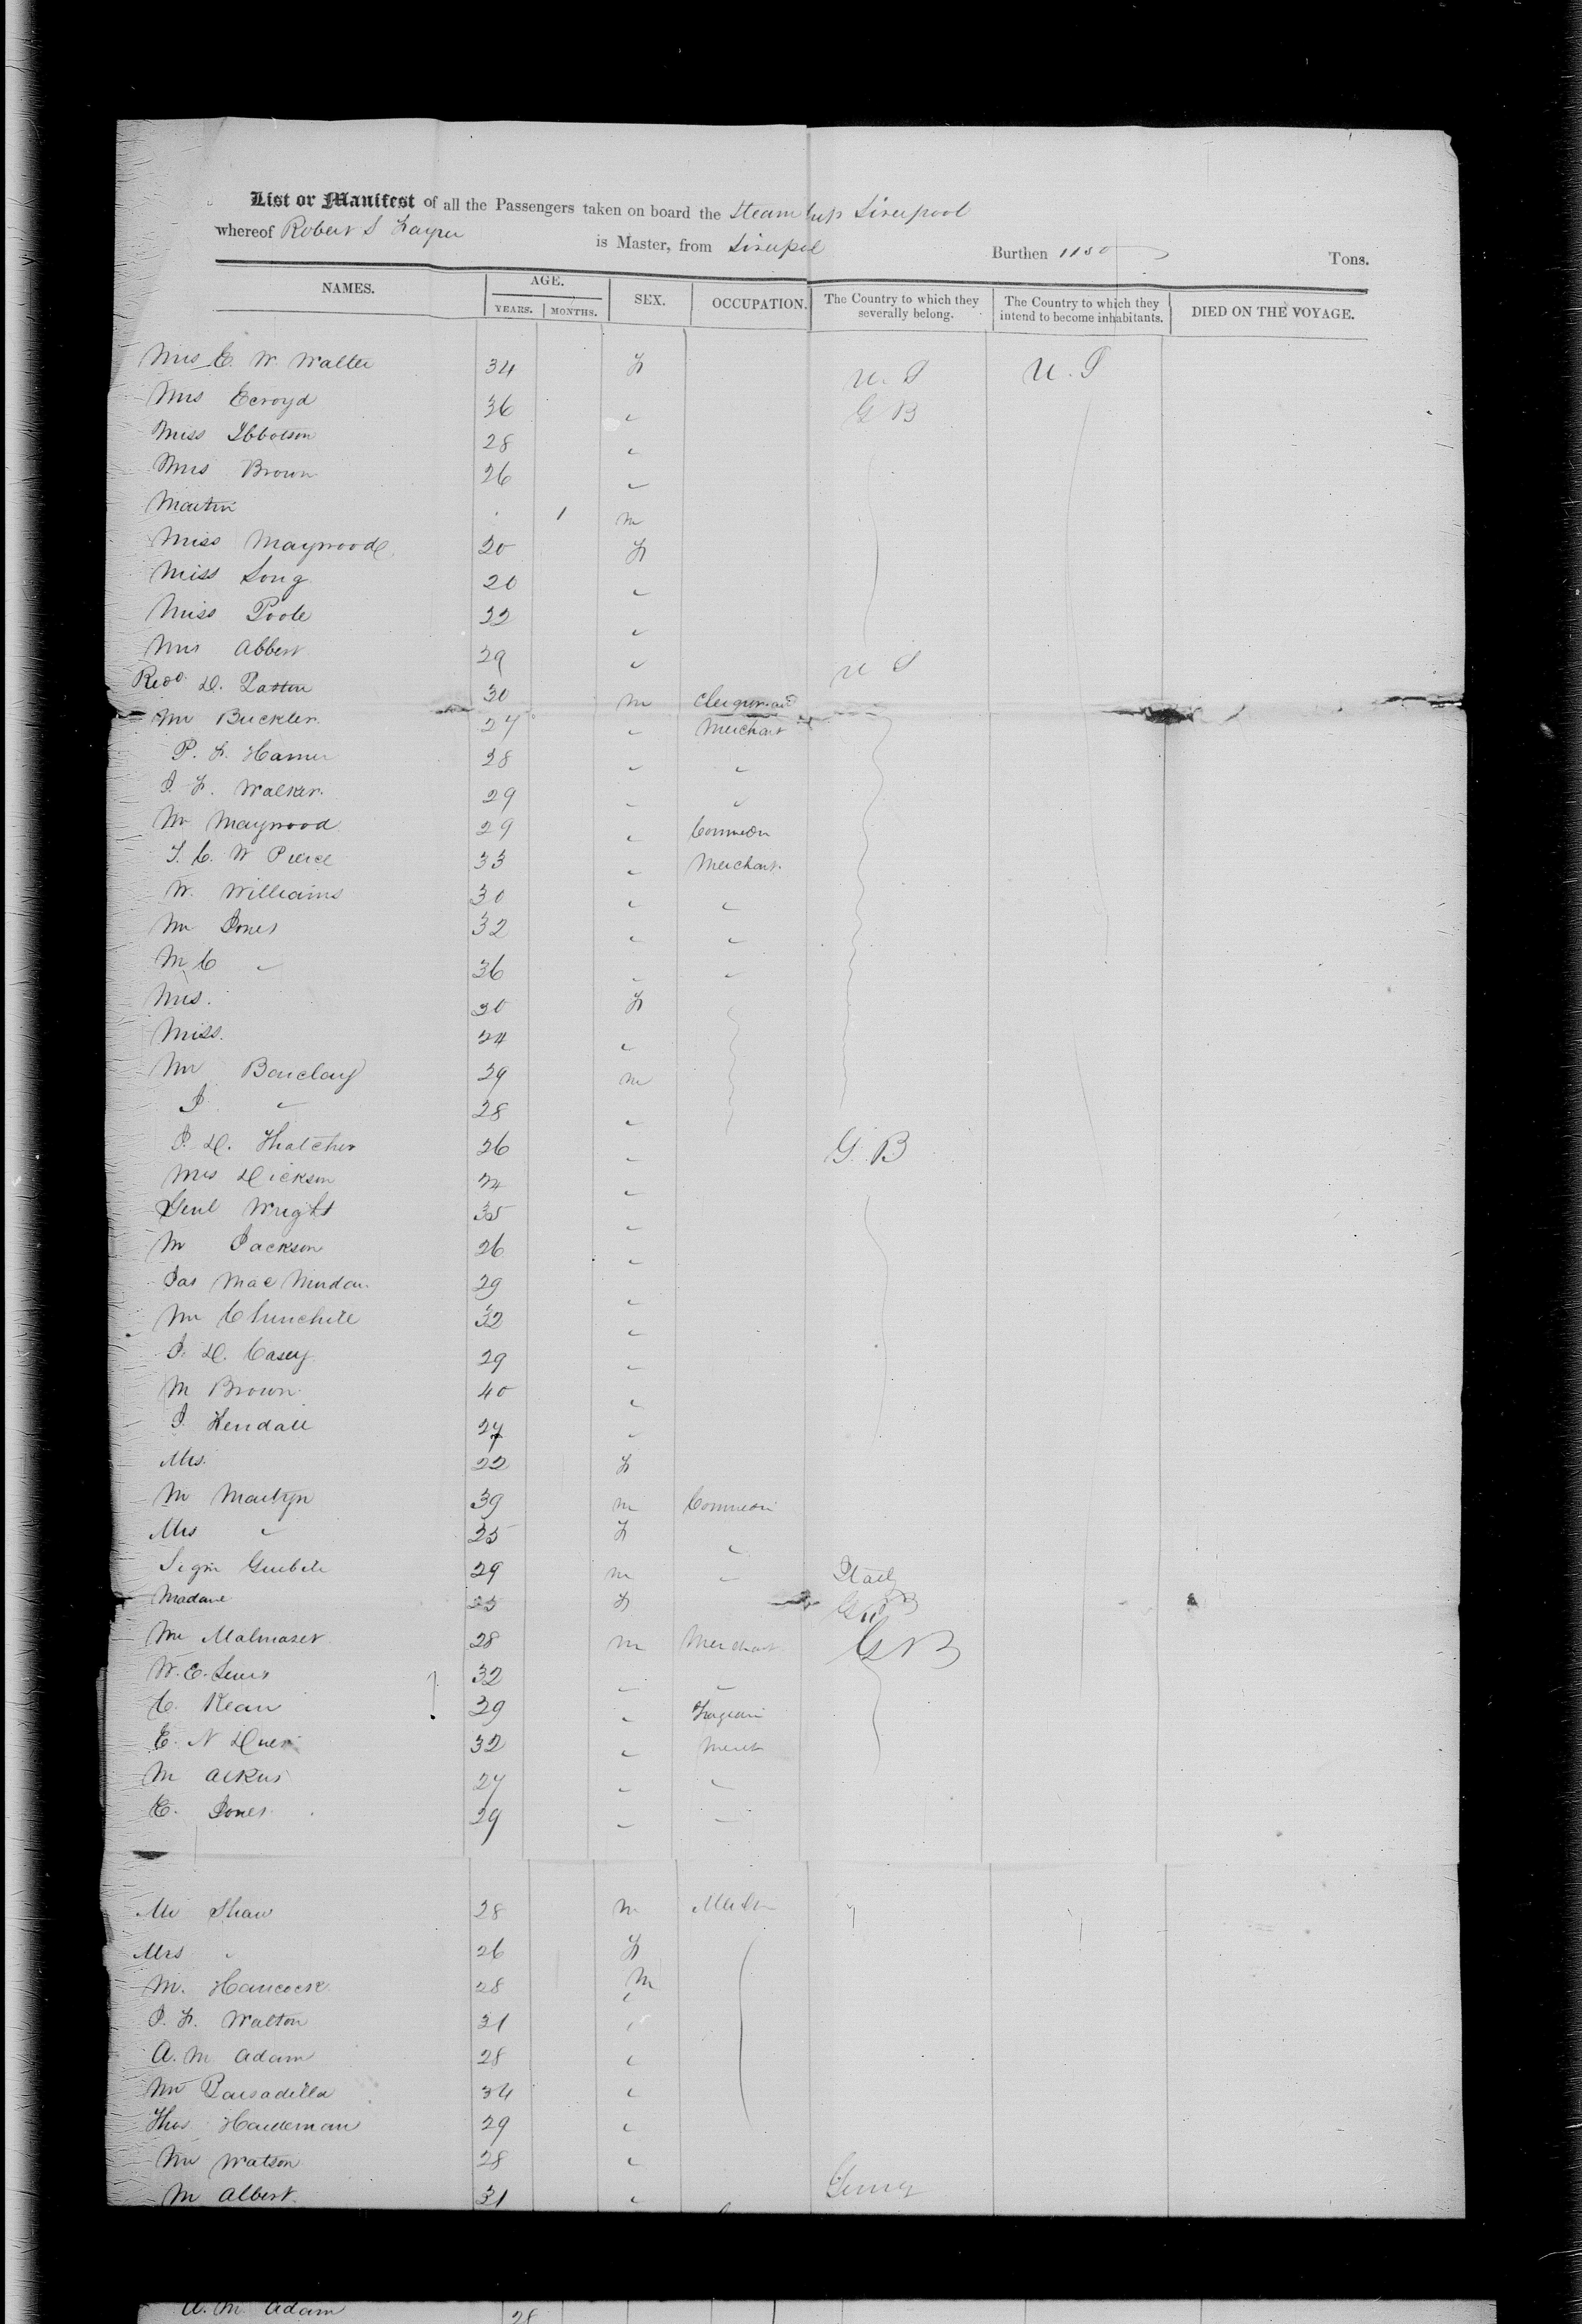 List or Manifest of all the Passengers taken on board the Steam Ship Liverpool
whereof Robert S Fayrer is Master, from Liverpool Burthen 1150 Tons.
NAMES. AGE. YEARS. MONTHS. SEX. OCCUPATION. The Country to which they severally belong. The Country to which they intend to become inhabitants. DIED ON THE VOYAGE.
Mrs E. W. Walter 34 F U. S U. S
Mrs Ecroyd 36 " G B
Miss Ibbotson 28 "
Mrs Brown 26 "
Martin 1 m
Miss Maywood 20 F
Miss Long 20 "
Miss Poole 22 "
Mrs Abbert 29 " U S
Revd D. 30 m Clergyman
Mr Buckler 27 " Merchant
P. F. Hamer 28 " "
J. F. Walker 29 " "
Mr Maywood 29 " Comedn
T. C. W Pierce 33 " Merchant
W. Williams 30 " "
Mr Jones 32 " "
M C " 36 " "
Mrs. 30 F
Miss. 24 "
Mr Barclay 39 m
J " 28 "
J. D. Thatcher 26 " G. B
Mrs Dickson 24 "
Genl Wright 35 "
M Jackson 26 "
Jas Mac 29 "
Mr Churchill 32 "
J. D. Casey 29 "
M Brown 40 "
J. Kendall 27 "
Mrs. 22 F
M Martyn 39 m Comedn
Mrs " 25 F "
Signr 29 m " Italy
Madame 25 F G B
Mr 28 m Merchant G B
W. E. Lewis 32 " "
C. Kean 29 " Tragedian
E. N Duer 32 " Mercht
M 27 " "
E. Jones 29 " "
Mr Shaw 28 m
Mrs " 26 F
M. Hancock 28 M "
J. F. Walton 31 "
A. M Adam 28 "
Mr 34 "
Thos Haldeman 29 "
Mr Watson 28 "
M Albert 31 "
A. M. Adam 28